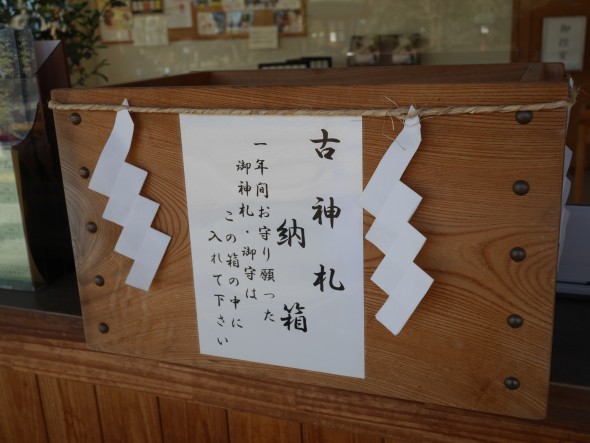 古神札
納箱
一年間お守り願った
御神札・御守は
この箱の中に
入れて下さい